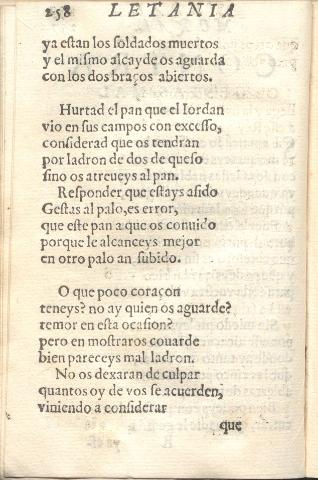 258 LETANIA
ya estan los soldados muertos
y el mismo alcayde os aguarda
con los dos braços abiertos.
Hurtad el pan que el Iordan
vio en sus campos con excesso,
considerad que os tendran
por ladron de dos de queso
sino os atreueys al pan.
Responder que estays asido
Gestas al palo, es error,
que este pan a que os conuido
porque le alcanceys mejor
en otro palo an subido.
O que poco coraçon
teneys? no ay quien os aguarde?
temor en esta ocasion?
pero en mostraros couarde
bien pareceys mal ladron.
No os dexaran de culpar
quantos oy de vos se acuerden,
viniendo a considerar
que